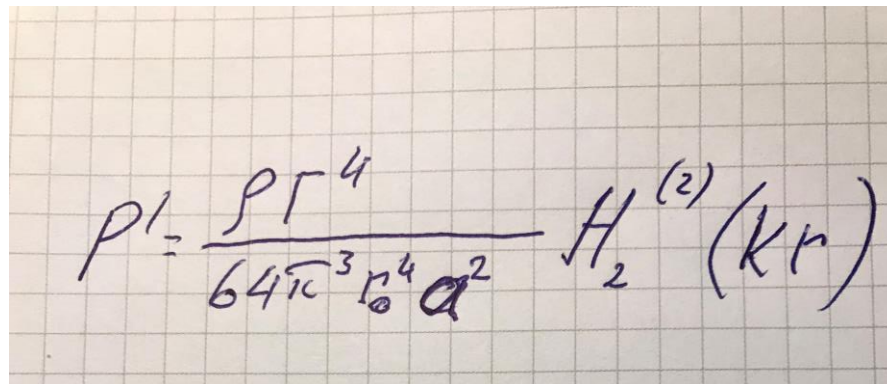 p' = \frac{ρ Γ^4}{64 π^3 r_0^4 a^2} H_2^{(2)} (kr)